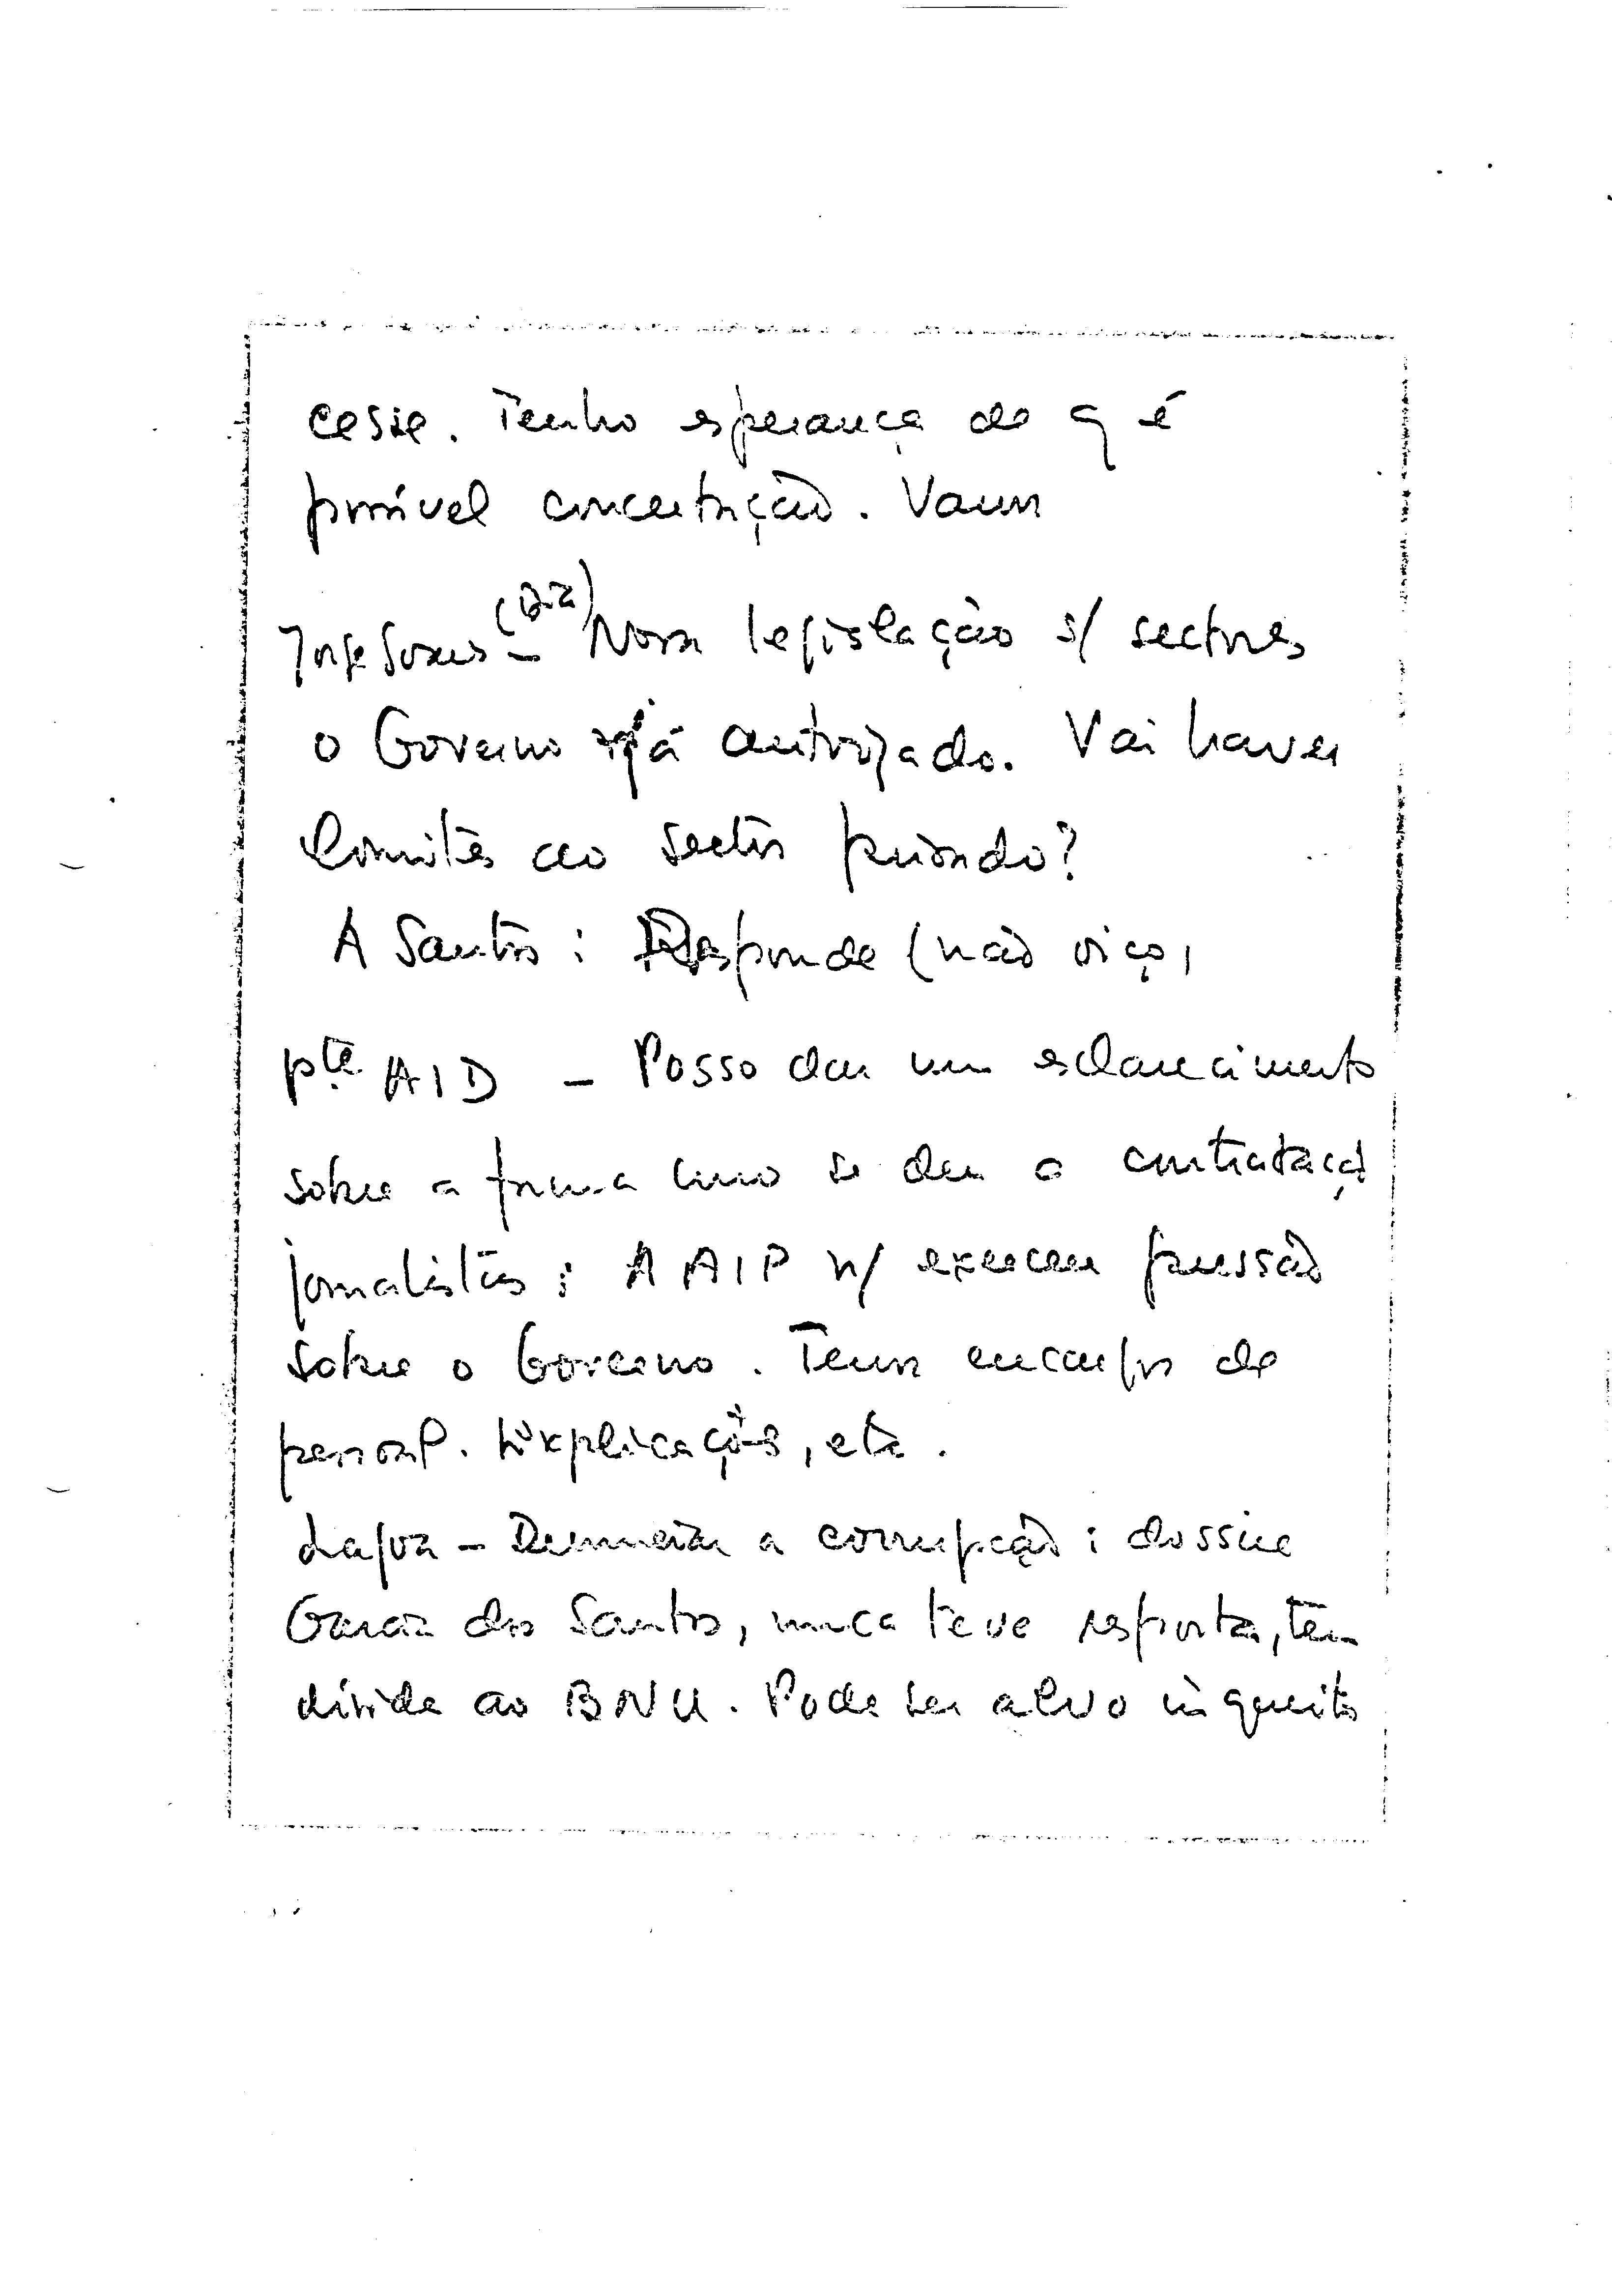 cesse. Tenho esperança de q é
possível concertação. Vamos
Jorge Soares - Nova legislação s/ sectores
o Governo já autorizado. Vai haver
limites ao sector privado?
A Santos: Responde (não oiço,
pte AID - Posso dar um esclarecimento
sobre a forma como se deu a contrataçã
jornalistas: A AIP n/ exerceu pressão
sobre o Governo. Temos encargos de
pessoal. Explicações, etc.
- Denuncia a corrupção: dossie
Garcia dos Santos, nunca teve resposta, tem
dívida ao BNU. Pode ser alvo inquerito